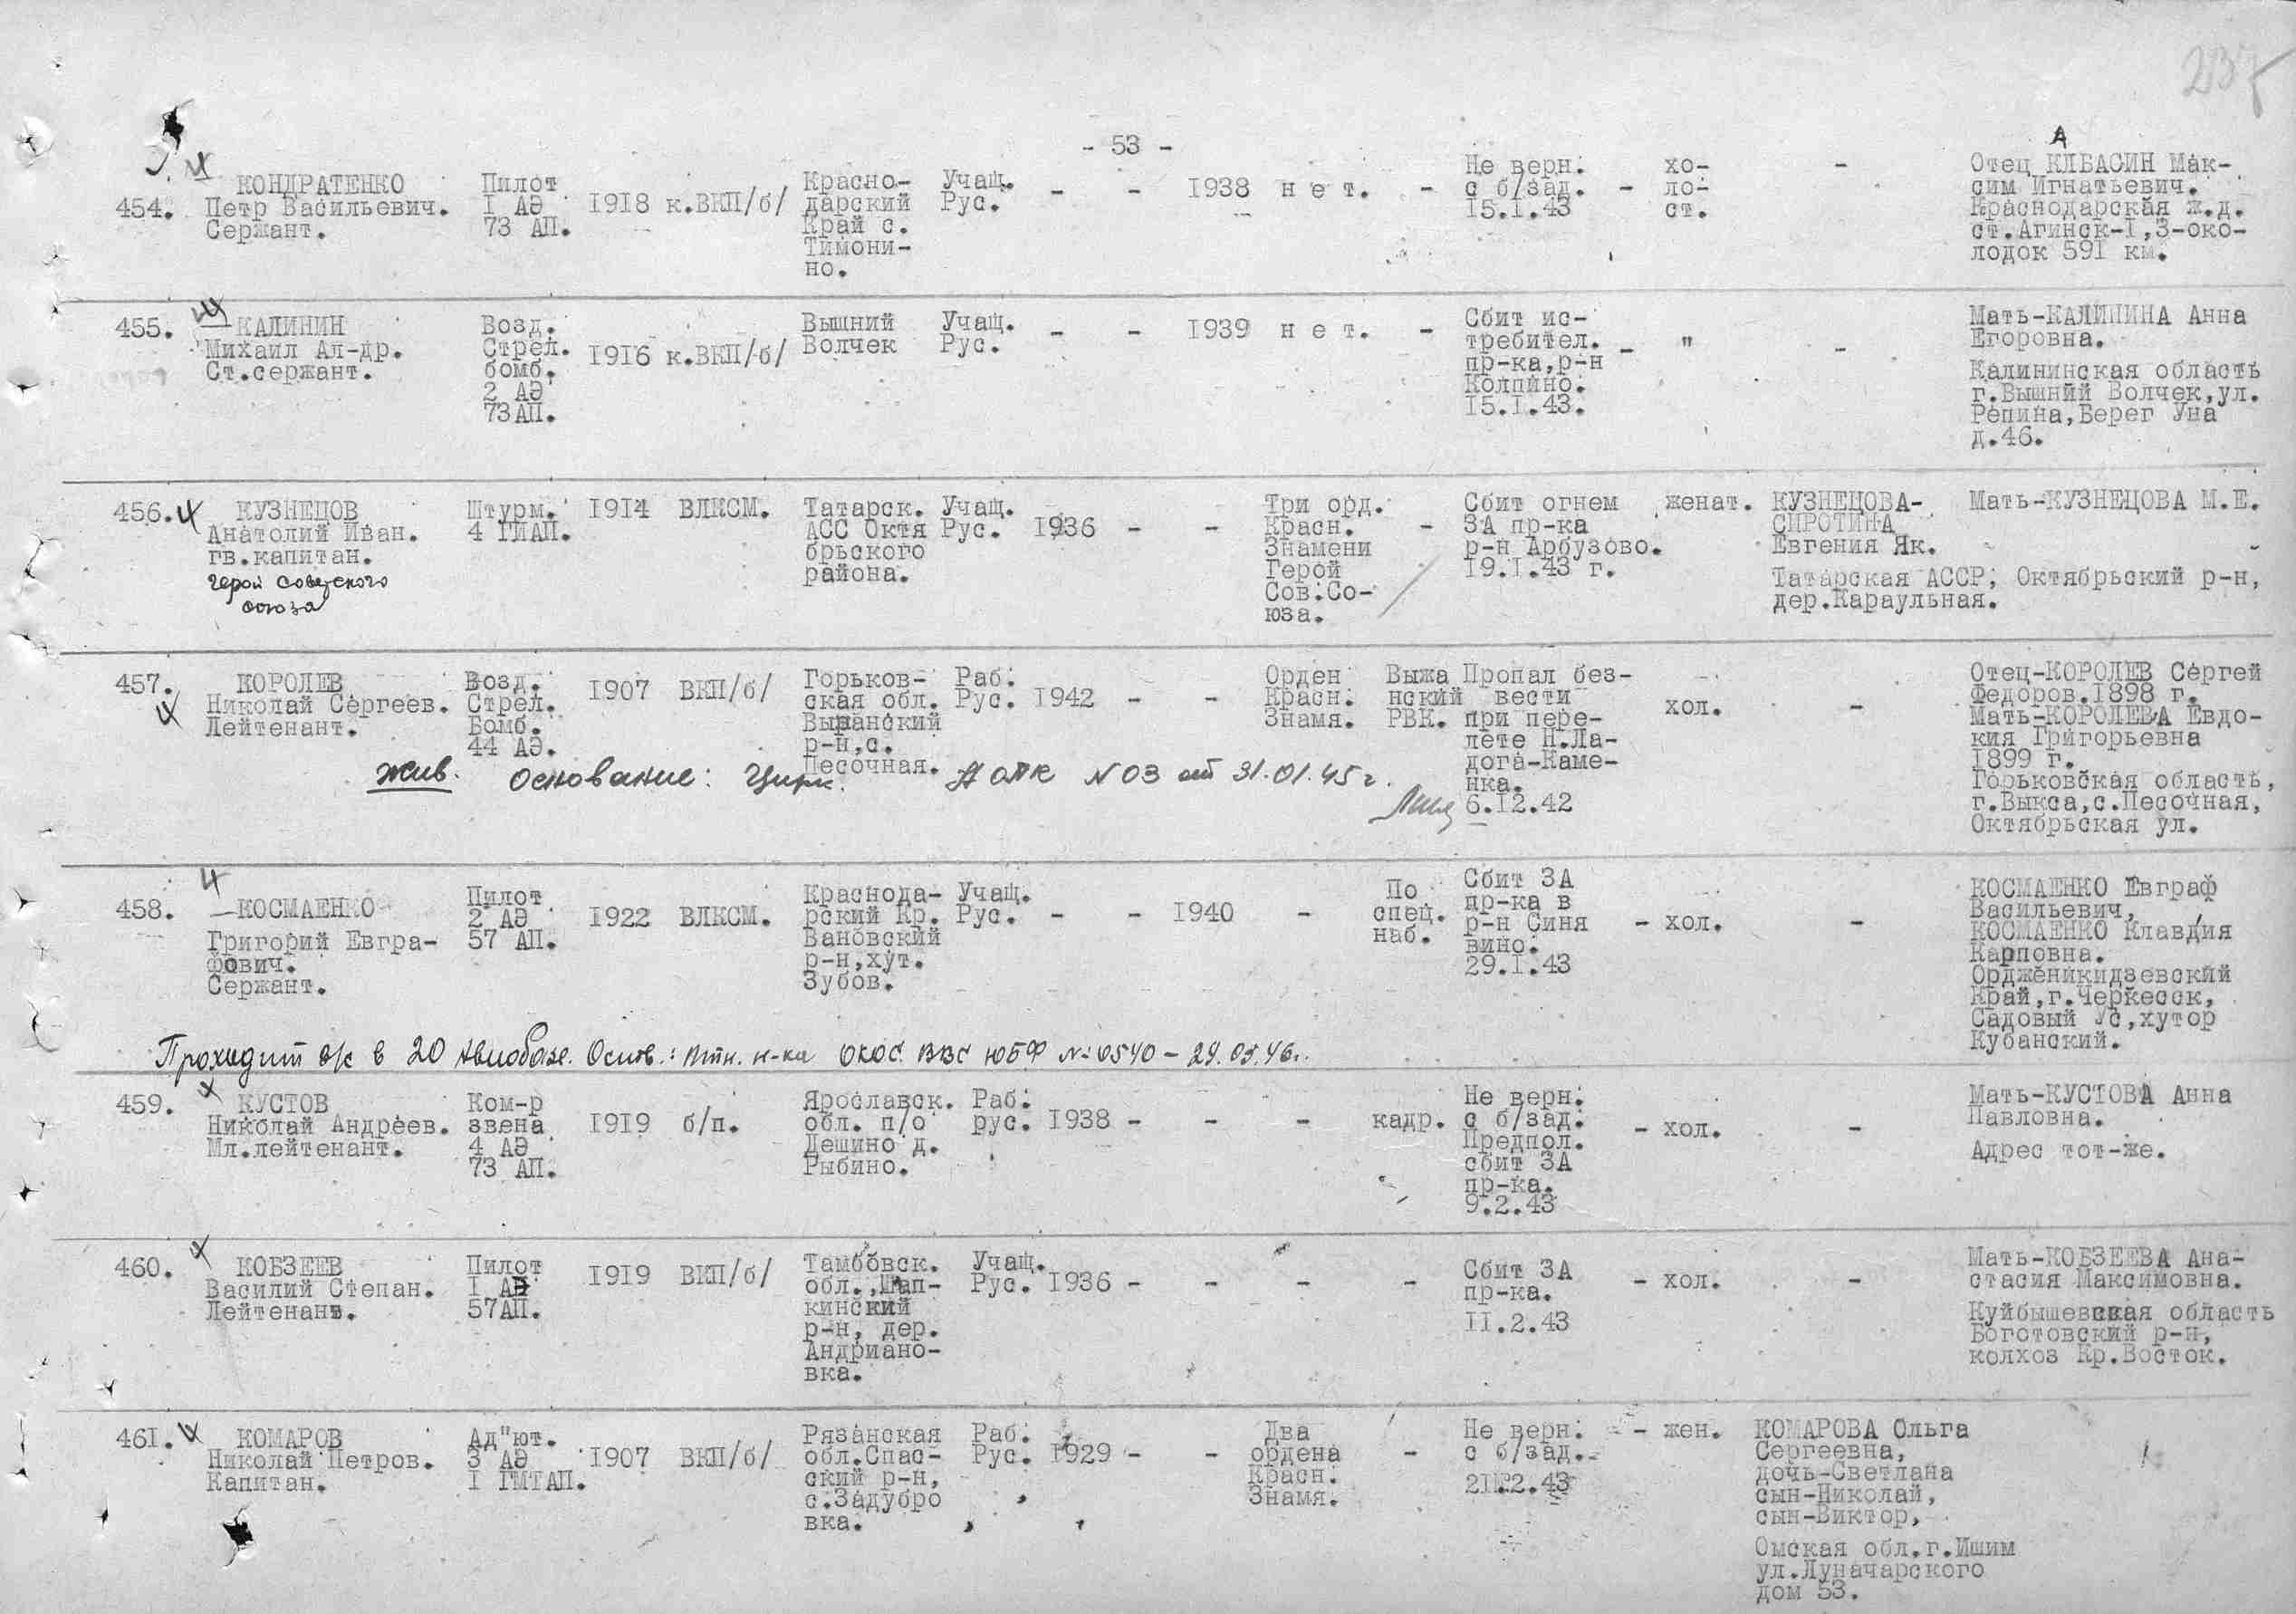 237
- 53 -
КОНДРАТЕНКО
454. Петр Васильевич.
Сержант.
Пилот
I АЭ
73 АП.
1918 к.ВКП/б/
Красно-
дарский
Край с.
Тимони-
но.
Учащ.
Рус.
- - 1938 н е т. -
Не верн.
с б/зад. -
15.I.43
хо-
ло-
ст.
-
А
Отец КЛБАСИН Мак-
сим Игнатьевич.
Краснодарская ж.д.
ст.Агинск-I,3-око-
лодок 591 км.
455. КАЛИНИН
Михаил Ал-др.
Ст.сержант.
Возд.
Стрел.
бомб.
2 АЭ
73АП.
1916 к.ВКП/б/
Вышний
Волчек
Учащ.
Рус.
- - 1939 н е т. -
Сбит ис-
требител.
пр-ка,р-н
Колпино.
15.I.43.
- " -
Мать-КАЛИНИНА Анна
Егоровна.
Калининская область
г.Вышний Волчек,ул.
Репина,Берег Уна
д.46.
456. КУЗНЕЦОВ
Анатолий Иван.
гв.капитан.
герой советского
союза
Штурм.
4 ГИАП.
1914 ВЛКСМ.
Татарск.
АСС Октя
брьского
района.
Учащ.
Рус.
1936 - -
Три орд.
Красн.
Знамени
Герой
Сов.Со-
юза.
-
Сбит огнем
ЗА пр-ка
р-н Арбузово.
19.I.43 г.
женат.
КУЗНЕЦОВА-
СИРОТИНА
Евгения Як.
Мать-КУЗНЕЦОВА М.Е.
-
Татарская АССР, Октябрьский р-н,
дер.Караульная.
457. КОРОЛЕВ
Николай Сергеев.
Лейтенант.
Возд.
Стрел.
Бомб.
44 АЭ.
1907 ВКП/б/
Горьков-
ская обл.
Выканский
р-н,с.
Песочная.
Раб.
Рус.
1942 - -
Орден
Красн.
Знамя.
Выжа
нский
РВК.
Пропал без-
вести
при пере-
лете Н.Ла-
дога-Каме-
нка.
6.12.42
хол.
-
Отец-КОРОЛЕВ Сергей
Федоров.1898 г.
Мать-КОРОЛЕВА Евдо-
кия Григорьевна
1899 г.
Горьковская область,
г.Выкса,с.Песочная,
Октябрьская ул.
жив. Основание: Цирк. N 03 от 31.01.45 г.
458. КОСМАЕНКО
Григорий Евгра-
фович.
Сержант.
Пилот
2 АЭ
57 АП.
1922 ВЛКСМ.
Краснода-
рский Кр.
Вановский
р-н,хут.
Зубов.
Учащ.
Рус.
- - 1940 -
По
спец.
наб.
Сбит ЗА
пр-ка в
р-н Синя
вино.
29.I.43
- хол. -
КОСМАЕНКО Евграф
Васильевич,
КОСМАЕНКО Клавдия
Карповна.
Орджёникидзевский
Край,г.Черкесск,
Садовый Ус,хутор
Кубанский.
Проходит в/с в 20 Авиобазе. Основ.: н-ка ВВС ЮБФ № 0540 - 29.05.46г.
459. КУСТОВ
Николай Андреев.
Мл.лейтенант.
Ком-р
звена
4 АЭ
73 АП.
1919 б/п.
Ярославск.
обл. п/о
Дешино д.
Рыбино.
Раб.
рус.
1938 - - -
кадр.
Не верн.
с б/зад.
Предпол.
сбит ЗА
пр-ка.
9.2.43
- хол. -
Мать-КУСТОВА Анна
Павловна.
Адрес тот-же.
460. КОБЗЕЕВ
Василий Степан.
Лейтенант.
Пилот
I АЭ
57АП.
1919 ВКП/б/
Тамбовск.
обл.,Шап-
кинский
р-н, дер.
Андриано-
вка.
Учащ.
Рус.
1936 - - - -
Сбит ЗА
пр-ка.
II.2.43
- хол. -
Мать-КОБЗЕЕВА Ана-
стасия Максимовна.
Куйбышевская область
Боготовский р-н,
колхоз Кр.Восток.
461. КОМАРОВ
Николай Петров.
Капитан.
Ад"ют.
3 АЭ
I ГМТАП.
1907 ВКП/б/
Рязанская
обл.Спас-
ский р-н,
с.Задубро
вка.
Раб.
Рус.
1929 - -
Два
ордена
Красн.
Знамя.
-
Не верн.
с б/зад.
2.43
- жен.
КОМАРОВА Ольга
Сергеевна,
дочь-Светлана
сын-Николай,
сын-Виктор,
Омская обл.г.Ишим
ул.Луначарского
дом 53.